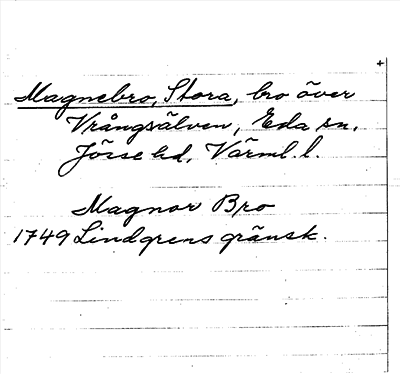 +
Magnebro, Stora, bro över
Vrångsälven, Eda sn,
Jösse hd, Värml. l.
Magnor Bro
1749 Lindgrens gränsk.